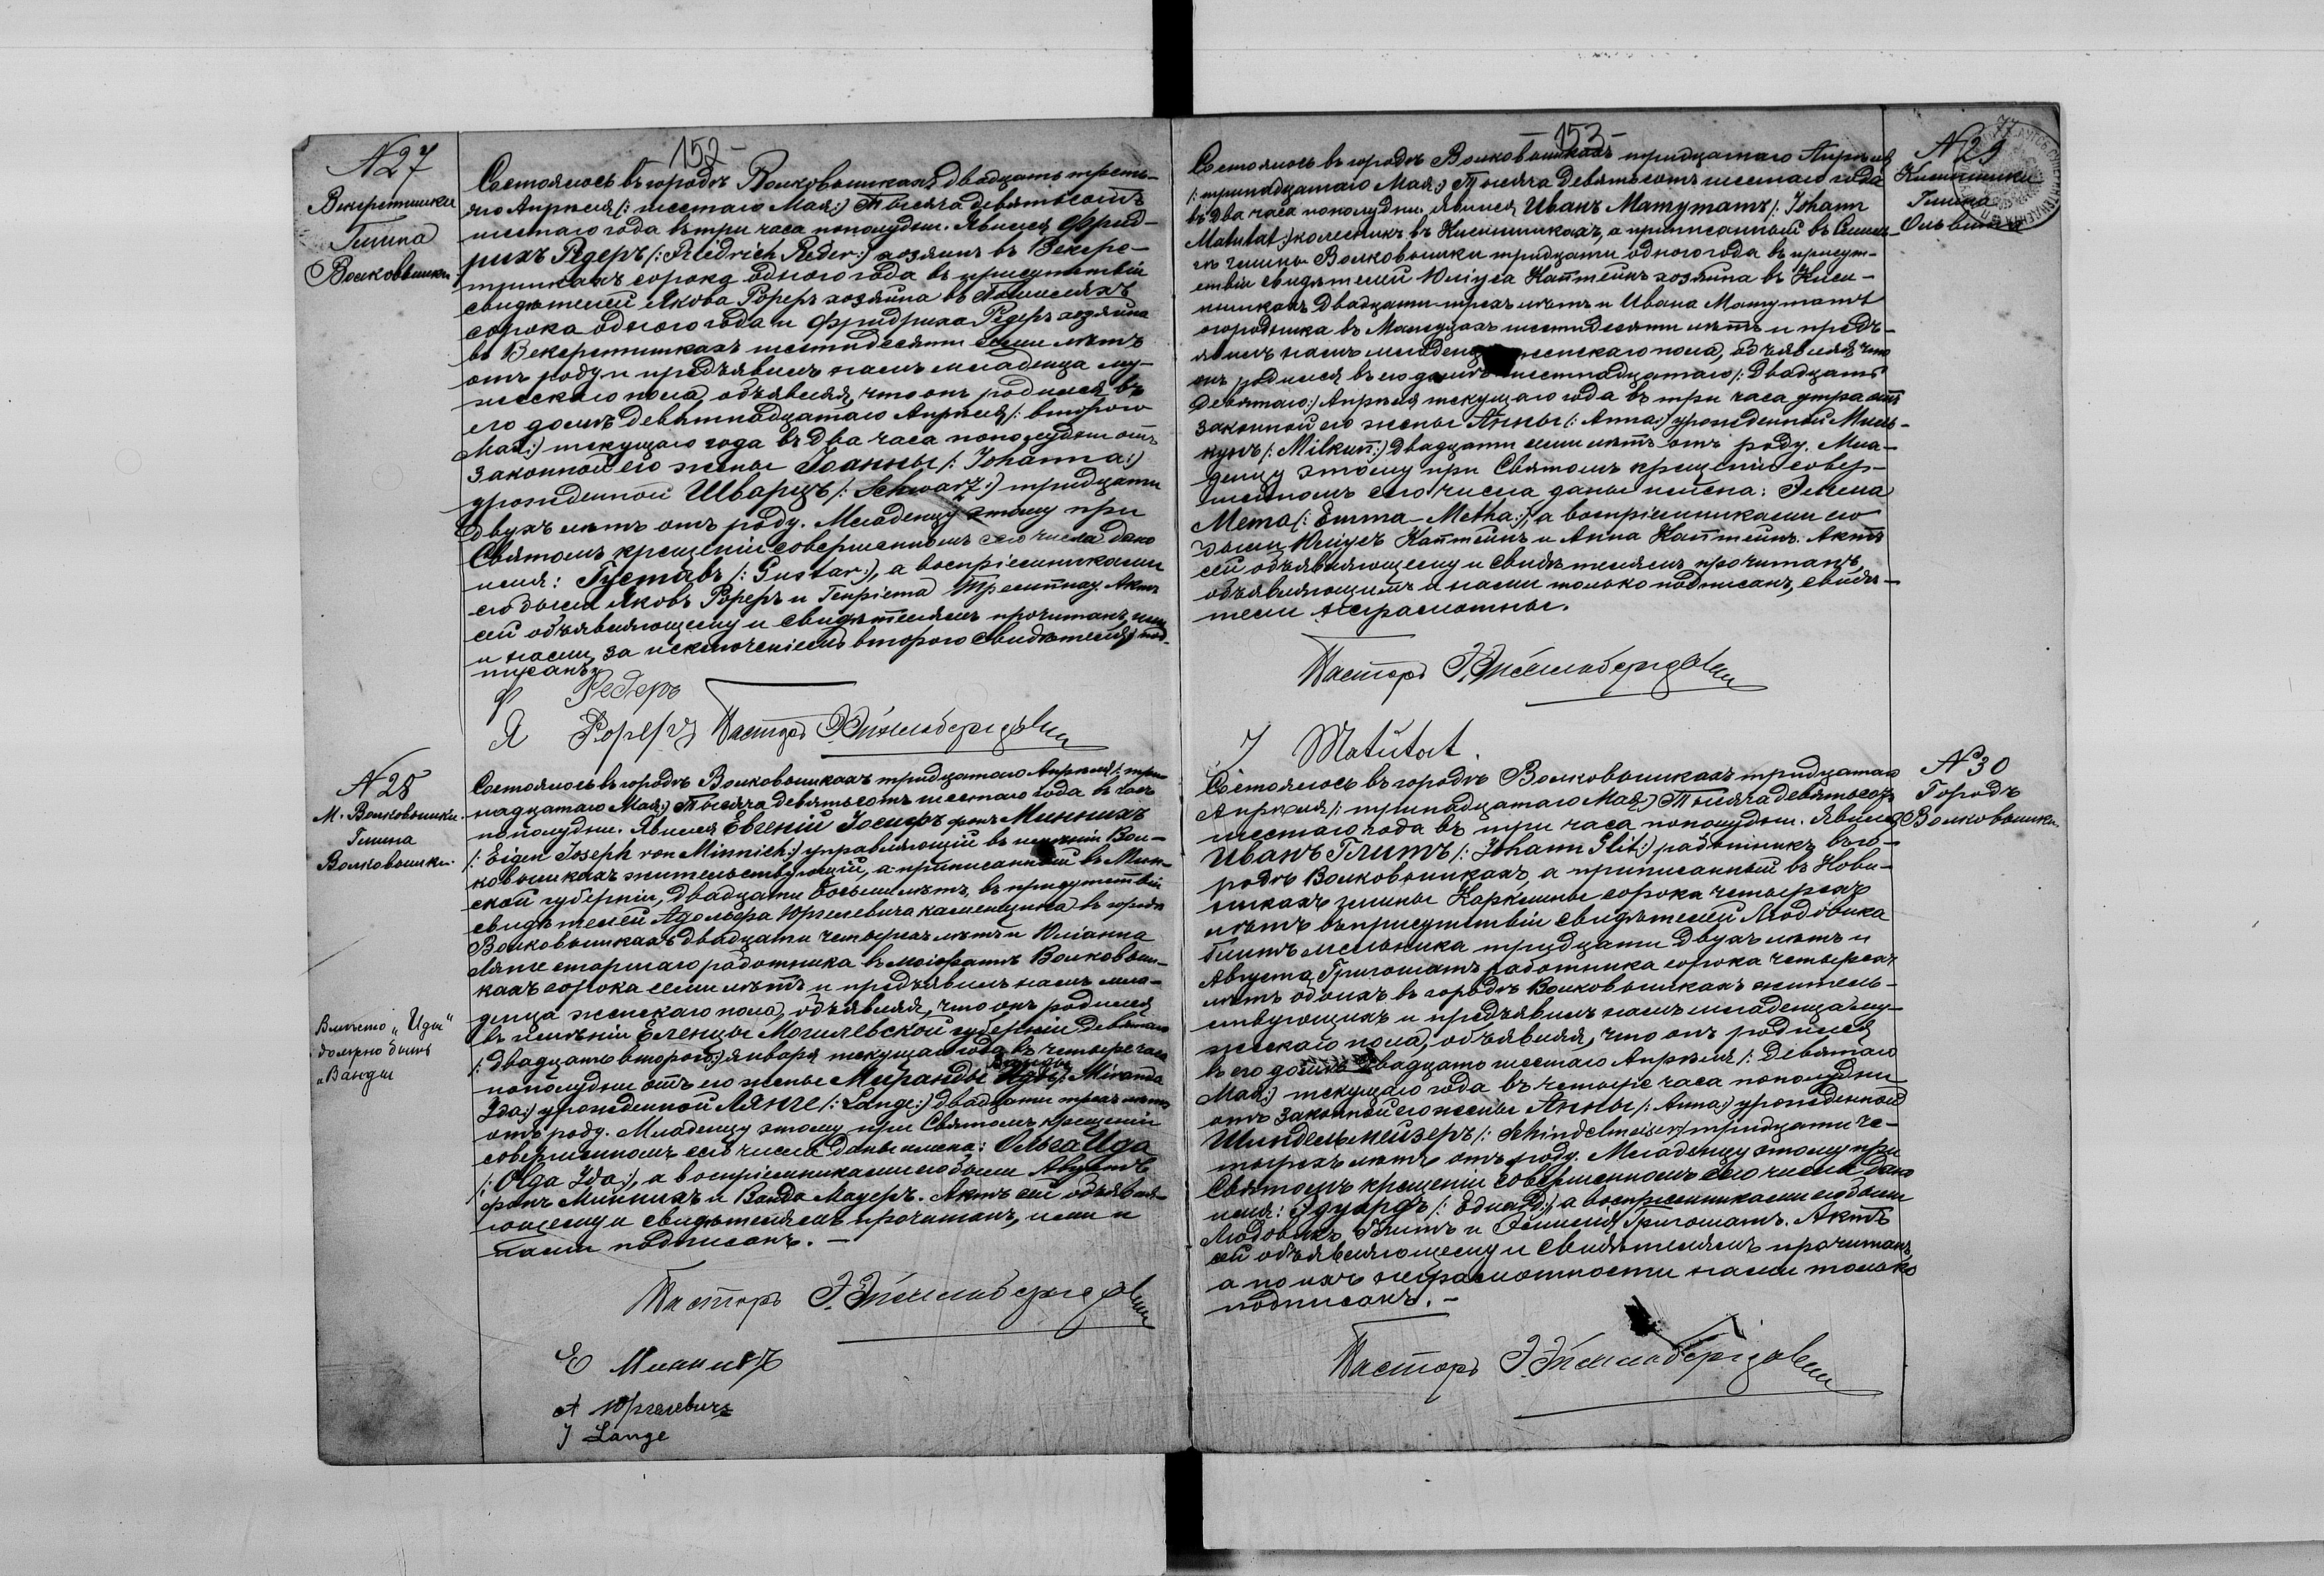 152 -
N 27
Векеротишки
Гмина
Волковышки
Состоялось въ городѣ Волковышкахъ двадцать треть-
яго Апрѣля (: шестаго Мая :) Тысяча девятьсотъ
шестаго года въ три часа пополудни. Явился Фрид-
рихъ Редеръ (: Friedrich Reder :) хозяинъ въ Векеро-
тишкахъ сорока одного года въ присутствіи
свидѣтелей Якова Рореръ хозяина въ
сорока одного года и Фридриха Редеръ хозяина
въ Векеротишкахъ шестидесяти семи лѣтъ
отъ роду и предъявилъ намъ младенца му-
жескаго пола, объявляя, что онъ родился въ
его домѣ девятнадцатаго Апрѣля (: втораго
Мая :) текущаго года въ два часа пополудни отъ
законной его жены Іоанны (: Johanna :)
урожденной Шварцъ (: Schwarz :) тридцати
двухъ лѣтъ отъ роду. Младенцу этому при
Святомъ крещеніи совершенномъ сего числа дано
имя: Густавъ (: Gustav :), а воспріемниками
его были Яковъ Рореръ и Генріета Актъ
сей объявляющему и свидѣтелямъ прочитанъ, ими
и нами, за исключеніемъ второго свидѣтеля, под-
писанъ.
Ф Редеръ
Я Рореръ Пасторъ
N 28
М. Волковышки.
Гмина
Волковышки.
Состоялось въ городѣ Волковышкахъ тридцатаго Апрѣля (: три-
надцатаго Мая :) Тысяча девятьсотъ шестаго года въ часъ
пополудни. Явился Евгеній Іосифъ фонъ Миннихъ
(: Eigen Joseph von Minnich :) управляющій въ имѣніи Вол-
ковышкахъ жительствующій, а приписанный въ Мин-
ской губерніи, двадцати восьми лѣтъ, въ присутствіи
свидѣтелей Адольфа Юргелевича каменщика въ городѣ
Волковышкахъ двадцати четырехъ лѣтъ и Юліанна
Лянге старшаго работника въ маіоратѣ Волковыш-
кахъ сорока семи лѣтъ и предъявилъ намъ мла-
денца женскаго пола, объявляя, что онъ родился
въ имѣніи Еленцы Могилевской губерніи девятаго
(: двадцать втораго :) января текущаго года въ четыре часа
пополудни отъ его жены Миранды Иды (: Miranda
Ванды
Ida :) урожденной Лянге (: Lange :) двадцати трехъ лѣтъ
отъ роду. Младенцу этому при Святомъ крещеніи
совершенномъ сего числа даны имена: Ольга Ида
(: Olga Ida :), а воспріемниками его были Августъ
фонъ Миннихъ и Ванда Мауеръ. Актъ сей объявля-
ющему и свидѣтелямъ прочитанъ, ими и
нами подписанъ. -
Вмѣсто „Иды"
должно быть
„Ванды
Пасторъ
Е Миннихъ
А Юргелевичъ
J Lange
- 153 -
N 29
Гмина
Состоялось въ городѣ Волковышкахъ тридцатаго Апрѣля
(: тринадцатаго Мая :) Тысяча девятьсотъ шестаго года
въ два часа пополудни. Явился Иванъ Матутатъ (: Johann
Matutat :) колесникъ въ а приписанный въ
гмины Волковышки тридцати одного года въ присут-
ствіи свидѣтелей Юліуса Каптейнъ хозяина въ
двадцати трехъ лѣтъ и Ивана Матутатъ
огородника въ шестидесяти лѣтъ и предъ-
явилъ намъ младенца женскаго пола, объявляя, что
онъ родился въ его домѣ шестнадцатаго (: двадцать
девятаго :) Апрѣля текущаго года въ три часа утра отъ
законной его жены Анны (: Anna :) урожденной Миль-
кунъ (: Milkun :) двадцати семи лѣтъ отъ роду. Мла-
денцу этому при Святомъ крещеніи совер-
шенномъ сего числа даны имена: Эмма
Мета (: Emma-Metha :), а воспріемниками его
были Юліусъ Каптейнъ и Анна Каптейнъ. Актъ
сей объявляющему и свидѣтелямъ прочитанъ,
объявляющимъ и нами только подписанъ, свидѣ-
тели неграмотные.
Пасторъ
J Matutat.
N 30
Городъ
Волковышки.
Состоялось въ городѣ Волковышкахъ тридцатаго
Апрѣля (: тринадцатаго Мая :) Тысяча девятьсотъ
шестаго года въ три часа пополудни. Явился
Иванъ Глитъ (: Johann Glit :) работникъ въ го-
родѣ Волковышкахъ, а приписанный въ Нови-
никахъ гмины сорока четырехъ
лѣтъ въ присутствіи свидѣтелей Людовика
Глитъ мельника тридцати двухъ лѣтъ и
Августа Григошатъ работника сорока четырехъ
лѣтъ обоихъ въ городѣ Волковышкахъ житель-
ствующихъ и предъявилъ намъ младенца му-
жескаго пола, объявляя, что онъ родился
въ его домѣ двадцать шестаго Апрѣля (: девятаго
Мая :) текущаго года въ четыре часа пополудни
отъ законной его жены Анны (: Anna :) урожденной
Шиндельмейзеръ (: Schindelmeiser :) тридцати че-
тырехъ лѣтъ отъ роду. Младенцу этому при
Святомъ крещеніи совершенномъ сего числа дано
имя: Эдуардъ (: Eduard :), а воспріемниками его были
Людовикъ Глитъ и Григошатъ. Актъ
сей объявляющему и свидѣтелямъ прочитанъ,
а по ихъ неграмотности нами только
подписанъ. -
Пасторъ